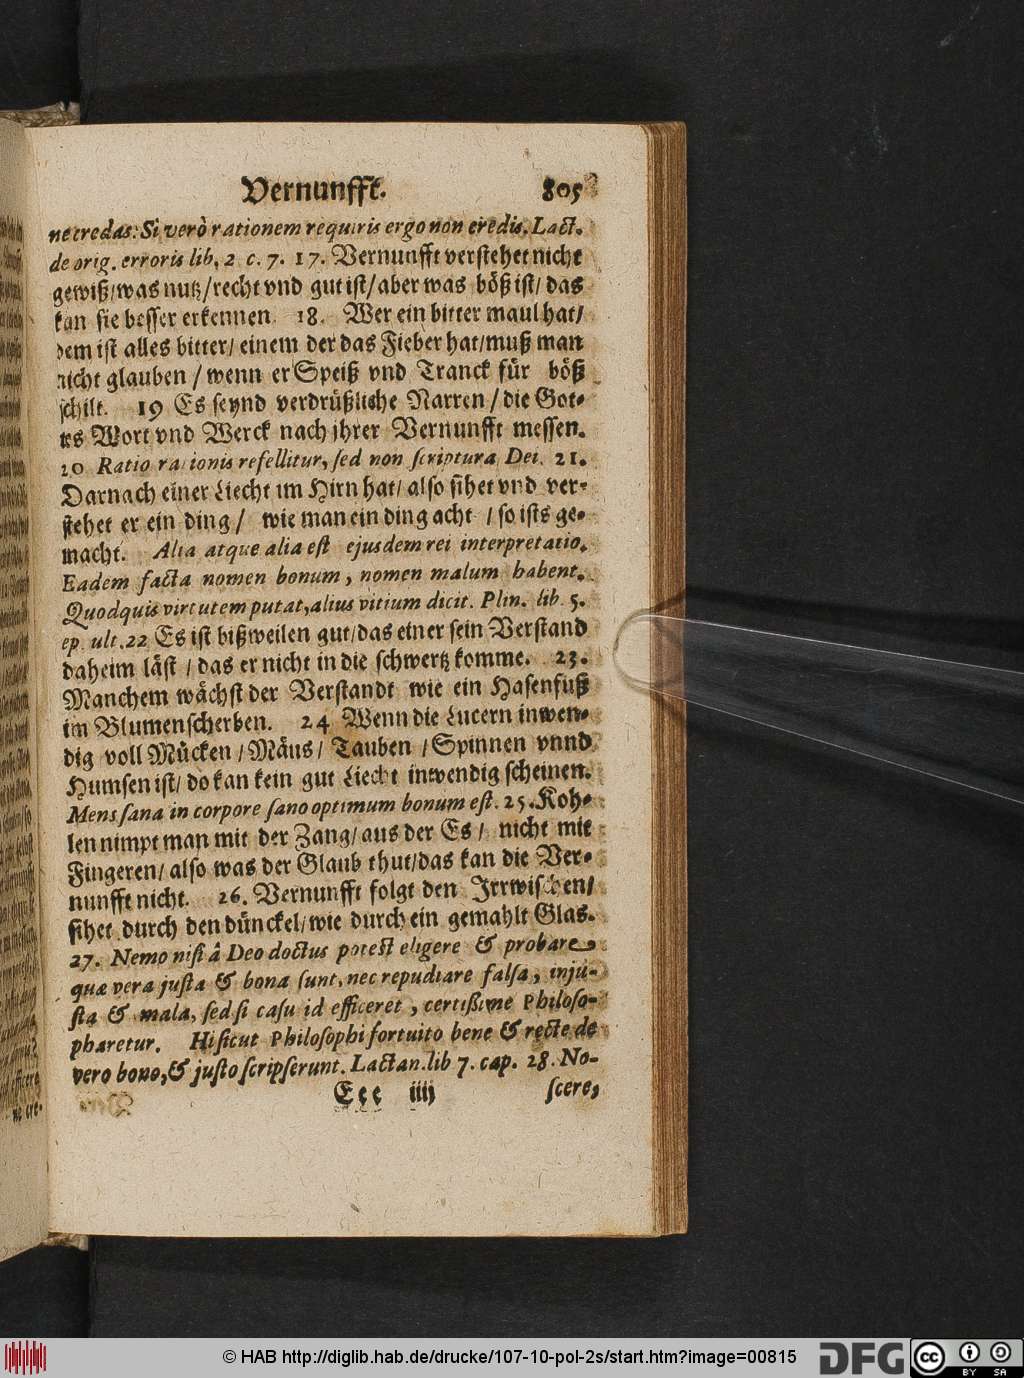 Vernunfft. 805
ne credas: Si verò rationem requiris ergo non credis. Lact.
de orig. erroris lib. 2 c. 7. 17. Vernunfft verstehet nicht
gewiß/was nutz/recht vnd gut ist/aber was böß ist/ das
kan sie besser erkennen. 18. Wer ein bitter maul hat/
dem ist alles bitter/ einem der das Fieber hat/muß man
nicht glauben / wenn er Speiß vnd Tranck für böß
schilt. 19 Es seynd verdrüßliche Narren / die Got-
tes Wort vnd Werck nach ihrer Vernunfft messen.
20 Ratio rationis refellitur, sed non scriptura Dei. 21.
Darnach einer Liecht im Hirn hat/ also sihet vnd ver-
stehet er ein ding / wie man ein ding acht / so ists ge-
macht. Alia atque alia est ejusdem rei interpretatio.
Eadem facta nomen bonum, nomen malum habent.
Quod quis virtutem putat, alius vitium dicit. Plin. lib. 5.
ep. ult. 22 Es ist bißweilen gut/das einer sein Verstand
daheim läst / das er nicht in die schwertz komme. 23.
Manchem wächst der Verstandt wie ein Hasenfuß
im Blumenscherben. 24 Wenn die Lucern inwen-
dig voll Mücken / Mäus / Tauben / Spinnen vnnd
Humsen ist/ do kan kein gut Liecht inwendig scheinen.
Mens sana in corpore sano optimum bonum est. 25. Koh-
len nimpt man mit der Zang/ aus der Es / nicht mit
Fingeren/ also was der Glaub thut/das kan die Ver-
nunfft nicht. 26. Vernunfft folgt den Irrwischen/
sihet durch den dünckel/wie durch ein gemahlt Glas.
27. Nemo nisi â Deo doctus potest eligere & probare
quæ vera justa & bona sunt, nec repudiare falsa, inju-
sta & mala, sed si casu id efficeret, certißime Philoso-
pharetur. Hi sicut Philosophi fortuito bene & recte de
vero bono, & justo scripserunt. Lactan. lib 7. cap. 28. No-
Eee iiij scere,
© HAB http://diglib.hab.de/drucke/107-10-pol-2s/start.htm?image=00815
DFG cc BY SA